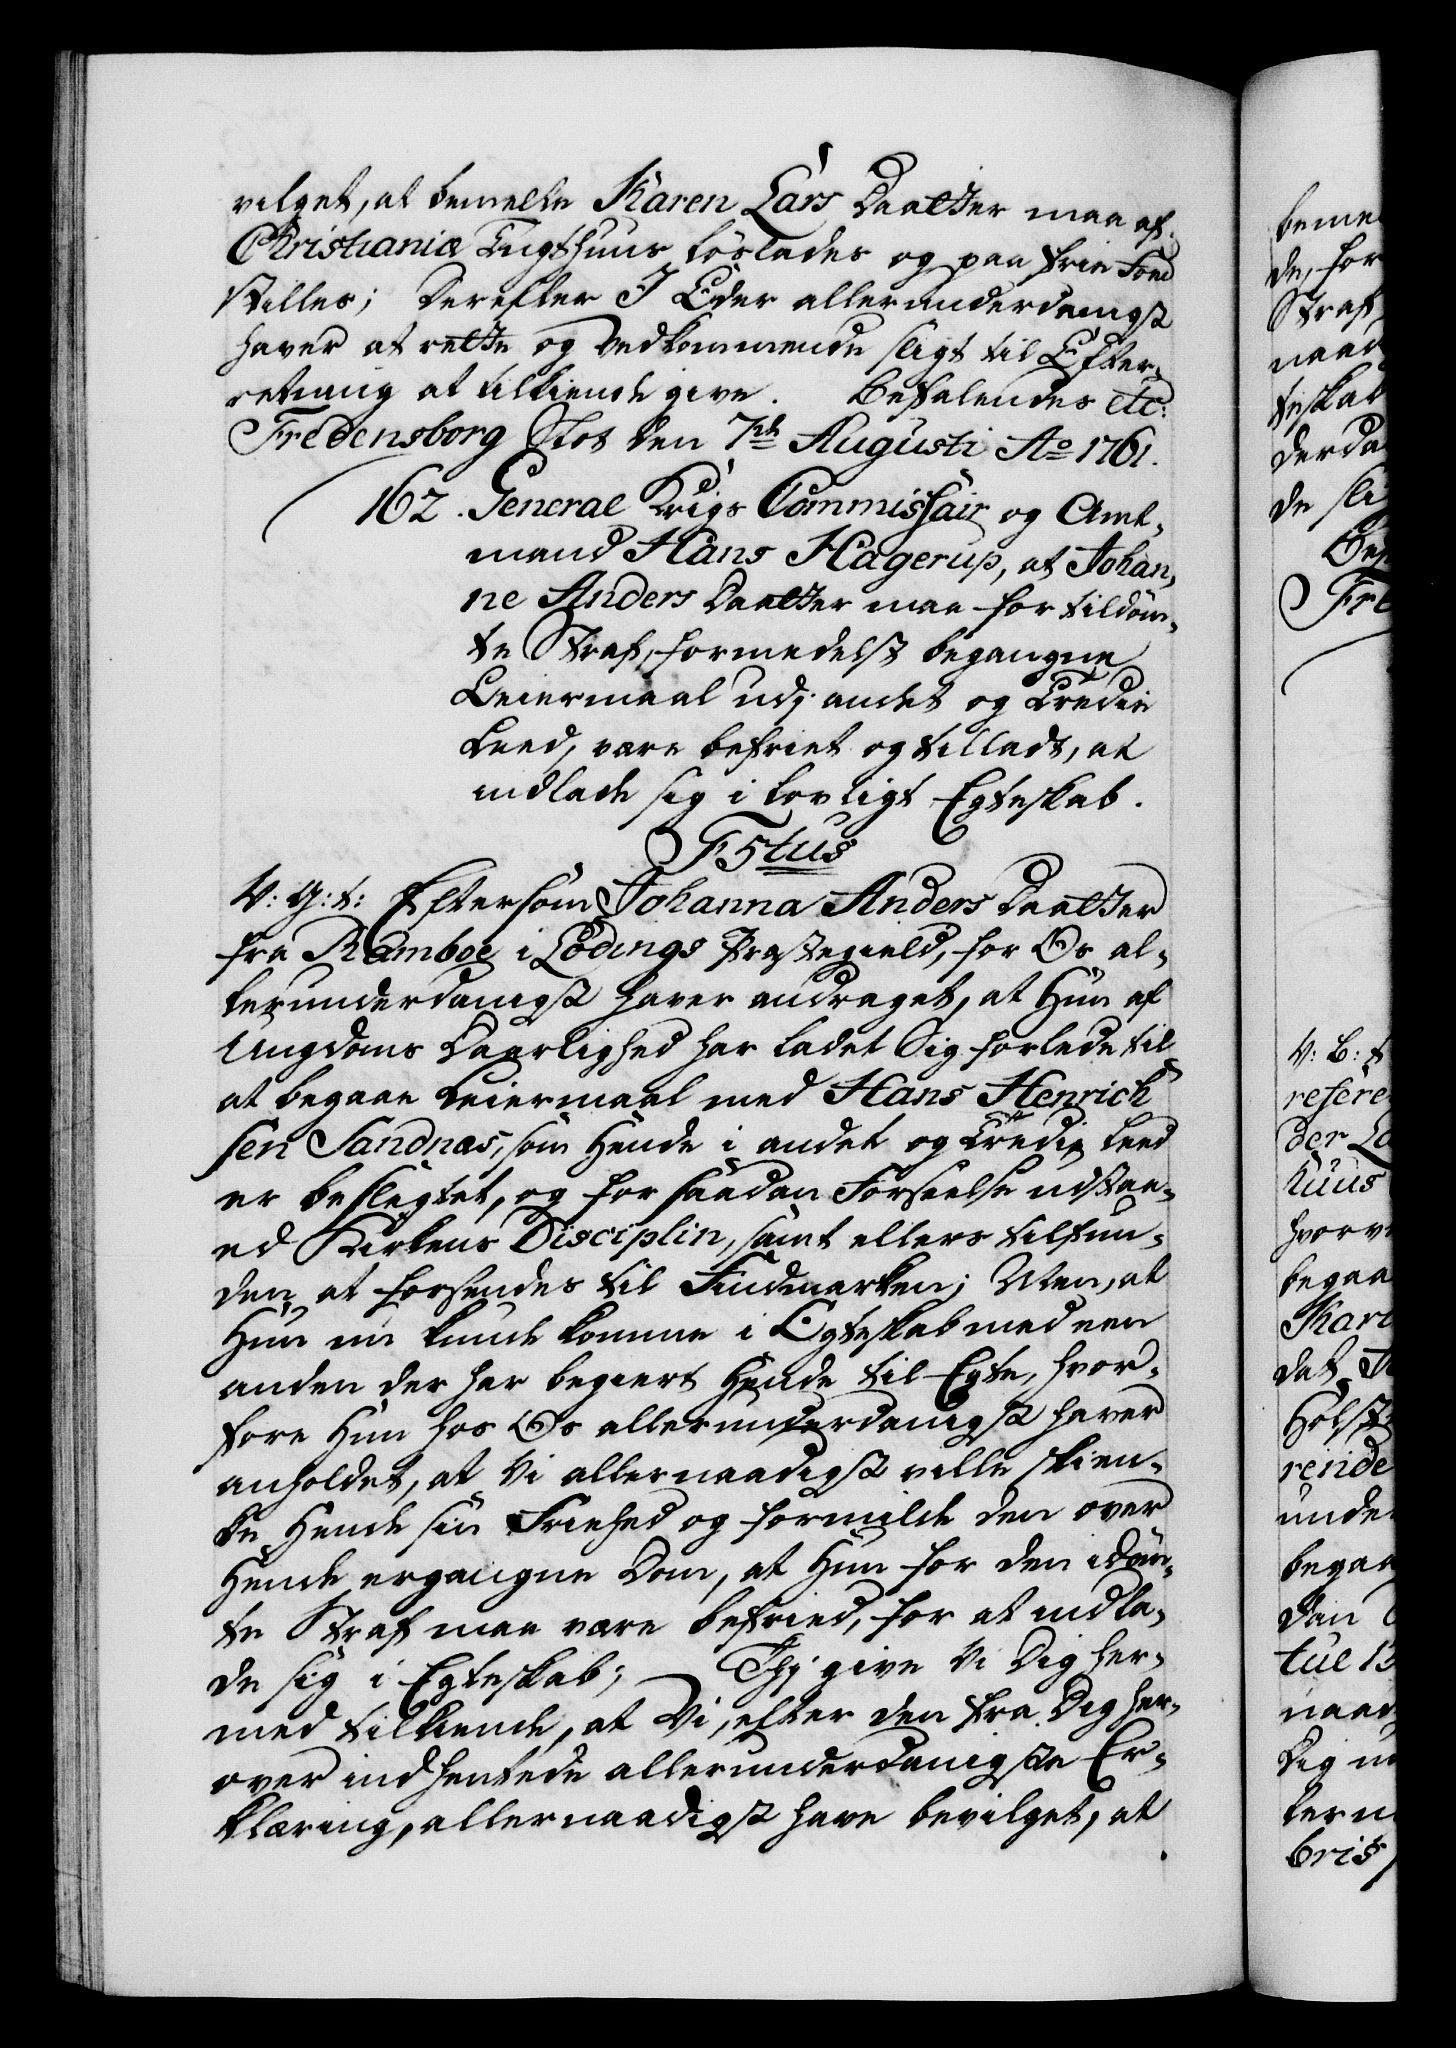 vilget, at bemelte Karen Lars Daatter maa af
Christianiæ Tugthuus løslades og paa frie Foed
stilles; Derefter I Eder allerunderdanigst
haver at rette og Vedkommende sligt til Efter-
retning at tilkiende give. Befalendes etc:
Fredensborg Slot den 7de Augusti Ao 1761.
162. General Krigs Commissair og Amt-
mand Hans Hagerup, at Johan-
ne Anders Daatter maa for tildøm-
te Straf, formedelst begangne
Leiermaal udj andet og Tredie
Leed, være befriet og tilladt, at
indlade sig i lovligt Egteskab.
F 5tus
V: G: t: Eftersom Johanna Anders Daatter
fra Ramboe i Lødings Præstegield, for Os al-
lerunderdanigst haver andraget, at Hun af
Ungdoms Daarlighed har ladet Sig forlede til
at begaae Leiermaal med Hans Henrich
sen Sandnæs, som Hende i andet og Tredie Leed
er beslegtet, og for saadan Forseelse udstaa-
ed Kirkens Disciplin, samt ellers tilfun-
den at forsendes til Findmarken; Men, at
Hun nu kunde komme i Egteskab med een
anden der har begiert Hende til Egte, hvor-
fore Hun hos Os allerunderdanigst haver
anholdet, at Vi allernaadigst ville skien-
ke Hende sin Friehed og formilde den over
Hende ergangne Dom, at Hun for den idøm-
te Straf maa være befried, for at indla-
de sig i Egteskab; Thj give Vi Dig her-
med tilkiende, at Vi, efter den fra Dig her-
over indhentede allerunderdanigste Er-
klæring, allernaadigst have bevilget, at
beme
de, for
Straf
naad
teskab
derda
de sli
Bef
Fre
V: G: t
refere
der La
Huus
hvorv
begaa
Kare
dat
Holst
rende
unde
begaa
dan
tul 13
naad
Dig
lern
bris